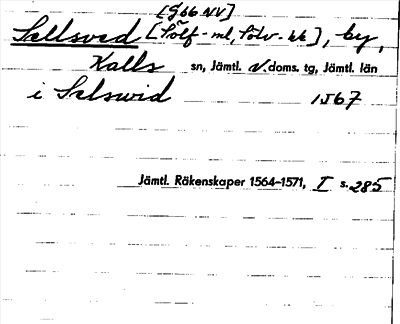 [966 NV]
Sällsved [Sölf- ml, Sölv- kk], by,
Kalls sn, Jämtl. N.doms. tg, Jämtl. län
i Selswid 1567
Jämtl. Räkenskaper 1564–1571, I s. 285